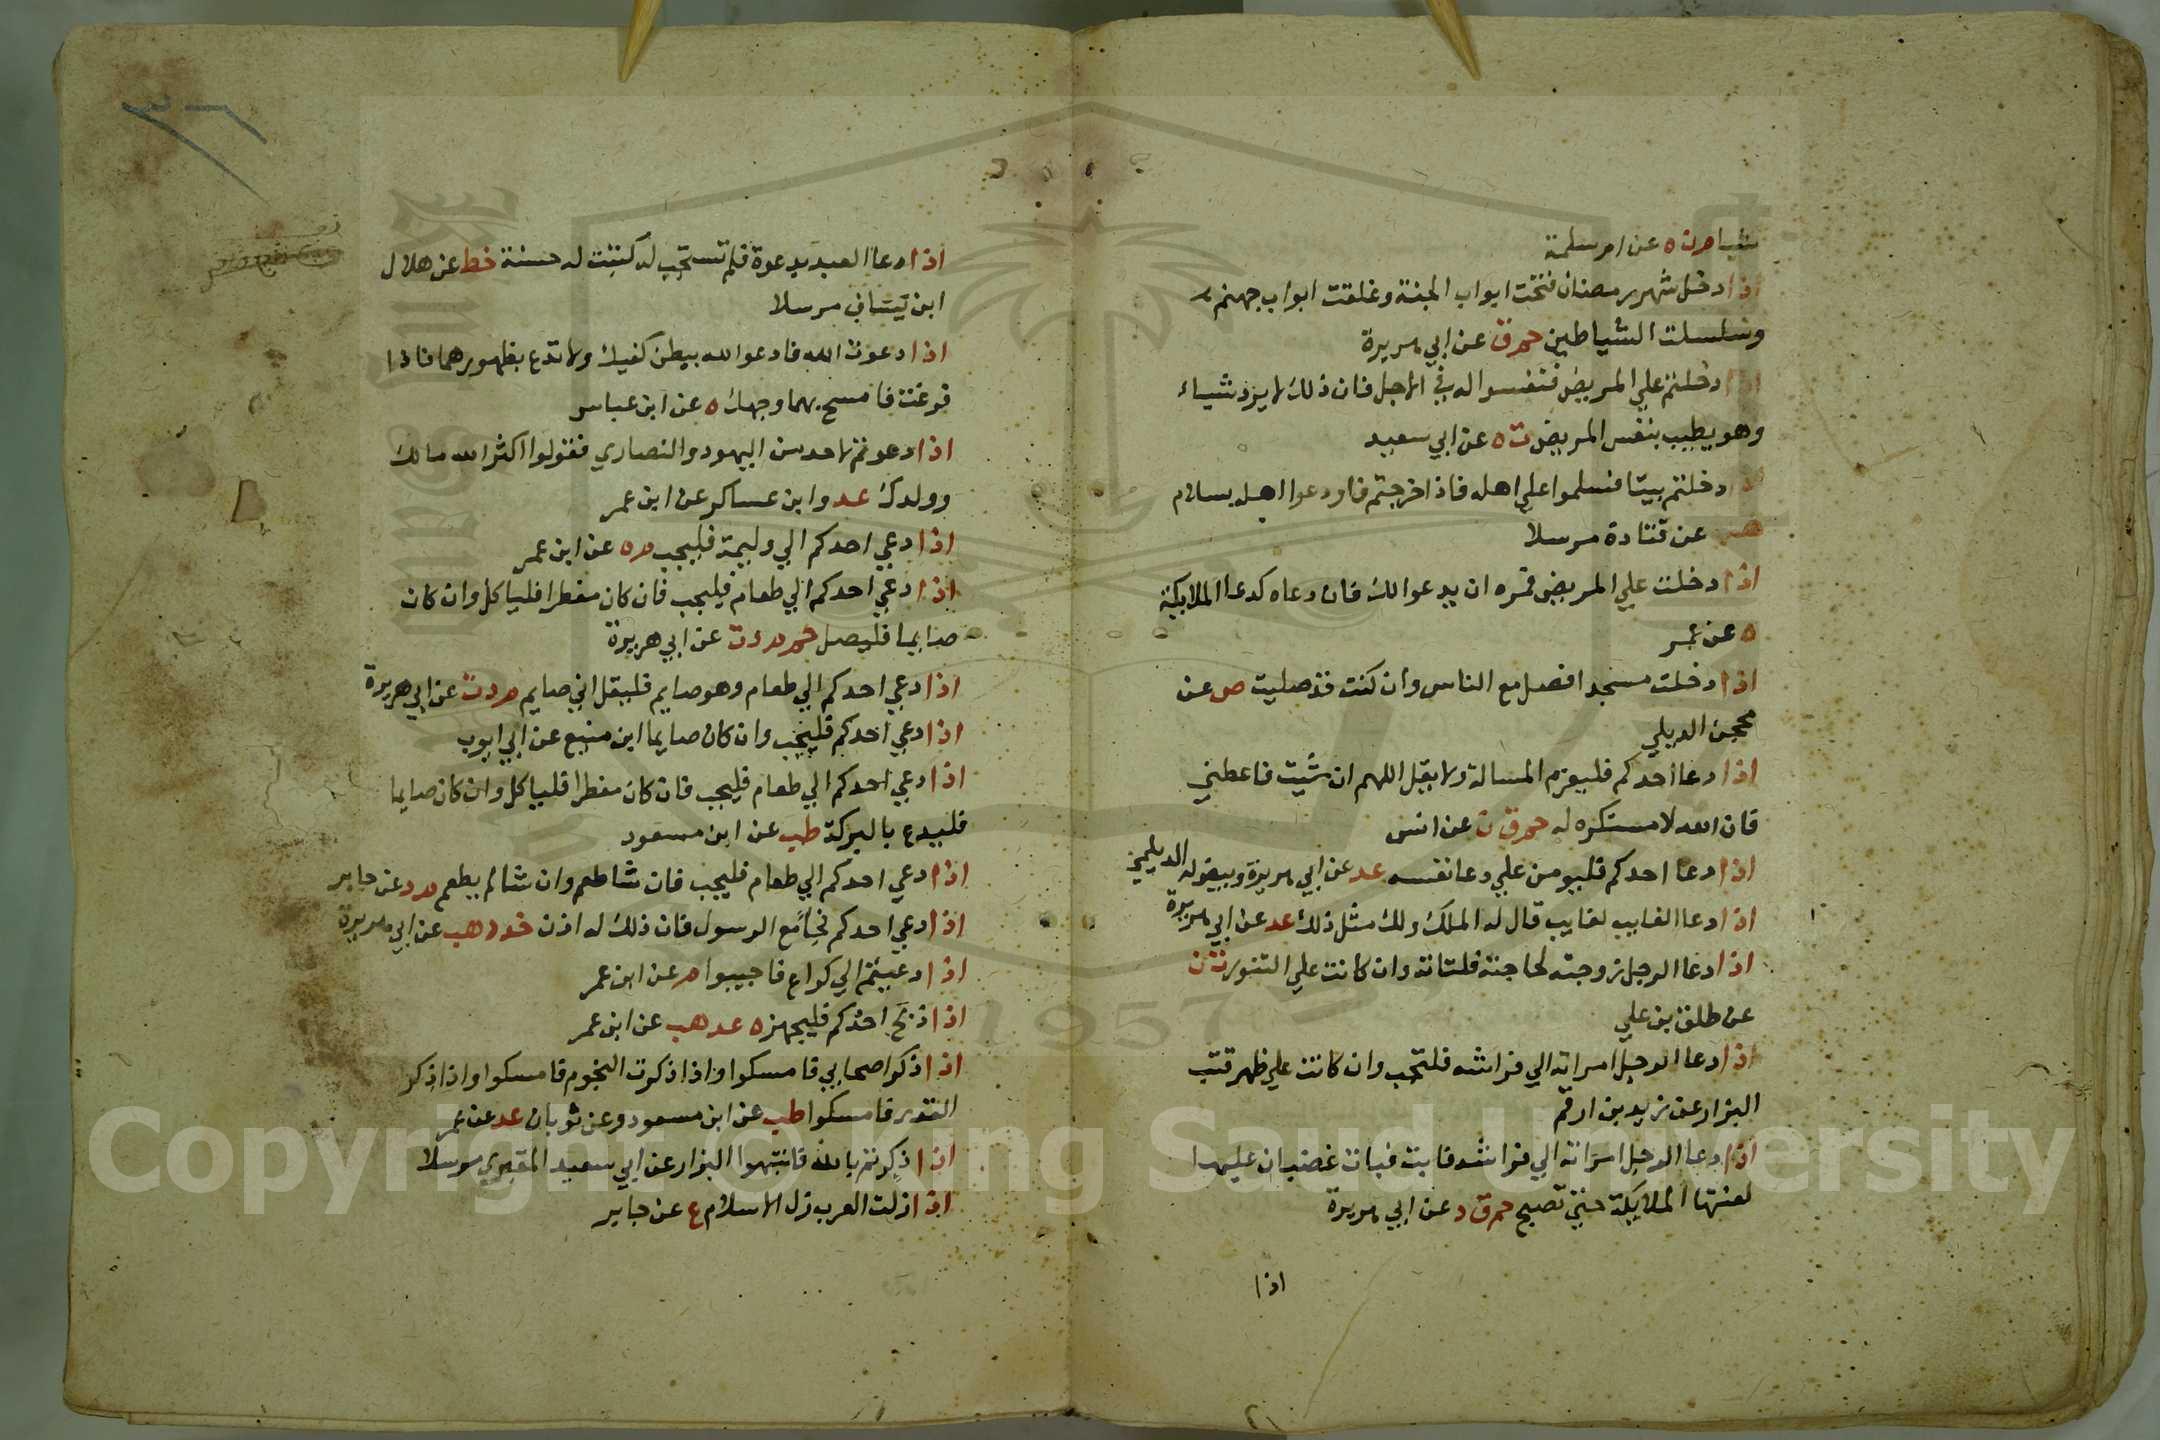 شيا م ن ه عن ام سلمة
اذا دخل شهر رمضان فتحت ابواب الجنة وغلقت ابواب جهنم
وسلسلت الشياطين حم ق عن ابي هريرة
اذا دخلتم علي المريض فنفسوا له في الاجل فان ذلك لا يرد شياء
وهو يطيب بنفس المريض ت ه عن ابي سعيد
اذا دخلتم بيتا فسلموا علي اهله فاذا خرجتم فاودعوا اهله بسلام
هب عن قتادة مرسلا
اذا دخلت علي المريض فمره ان يدعوا لك فان دعاه كدعا الملايكة
ه عن عمر
اذا دخلت مسجدا فصل مع الناس وان كنت قد صليت ص عن
محجن الديلي
اذا دعا احدكم فليعزم المسالة ولا يقل اللهم ان شيت فاعطني
فان الله لا مستكره له حم ق ن عن انس
اذا دعا احدكم فليومن علي دعا نفسه عد عن ابي هريرة وبيض له الديلمي
اذا دعا الغايب لغايب قال له الملك ولك مثل ذلك عد عن ابي هريرة
اذا دعا الرجل زوجته لحاجته فلتاته وان كانت علي التنور ت ن
عن طلق بن علي
اذا دعا الرجل امراته الي فراشه فلتجب وان كانت علي ظهر قتب
البزار عن زيد بن ارقم
اذا دعا الرجل امراته الي فراشه فابت فبات غضبان عليها
لعنتها الملايكة حتي تصبح حم ق د عن ابي هريرة
اذا
اذا دعا العبد بدعوة فلم تستجب له كتبت له حسنة خط عن هلال
ابن يساف مرسلا
اذا دعوت الله فادعوا الله ببطن كفيك ولا تدع بظهورهما فاذا
فرغت فامسح بهما وجهك ه عن ابن عباس
اذا دعوتم لاحد من اليهود والنصاري فقولوا اكثر الله مالك
وولدك عد وابن عساكر عن ابن عمر
اذا دعي احدكم الي وليمة فليجب م ه عن ابن عمر
اذا دعي احدكم الي طعام فليجب فان كان مفطرا فلياكل وان كان
صايما فليصل حم م د ت عن ابي هريرة
اذا دعي احدكم الي طعام وهو صايم فليقل اني صايم م د ت عن ابي هريرة
اذا دعي احدكم فليجب وان كان صايما ابن منيع عن ابي ايوب
اذا دعي احدكم الي طعام فليجب فان كان مفطرا فلياكل وان كان صايما
فليدع بالبركة طب عن ابن مسعود
اذا دعي احدكم الي طعام فليجب فان شا طعم وان شا لم يطعم م د عن جابر
اذا دعي احدكم فجا مع الرسول فان ذلك له اذن خد د هب عن ابي هريرة
اذا دعيتم الي كراع فاجيبوا م عن ابن عمر
اذا ذبح احدكم فليجهز ه عد هب عن ابن عمر
اذا ذكر اصحابي فامسكوا واذا ذكرت النجوم فامسكوا واذا ذكر
القدر فامسكوا طب عن ابن مسعود وعن ثوبان عد عن عمر
اذا ذكرتم بالله فانتهوا البزار عن ابي سعيد المقبري مرسلا
اذا ذلت العرب ذل الاسلام ع عن جابر
1957
Copyright © King Saud University